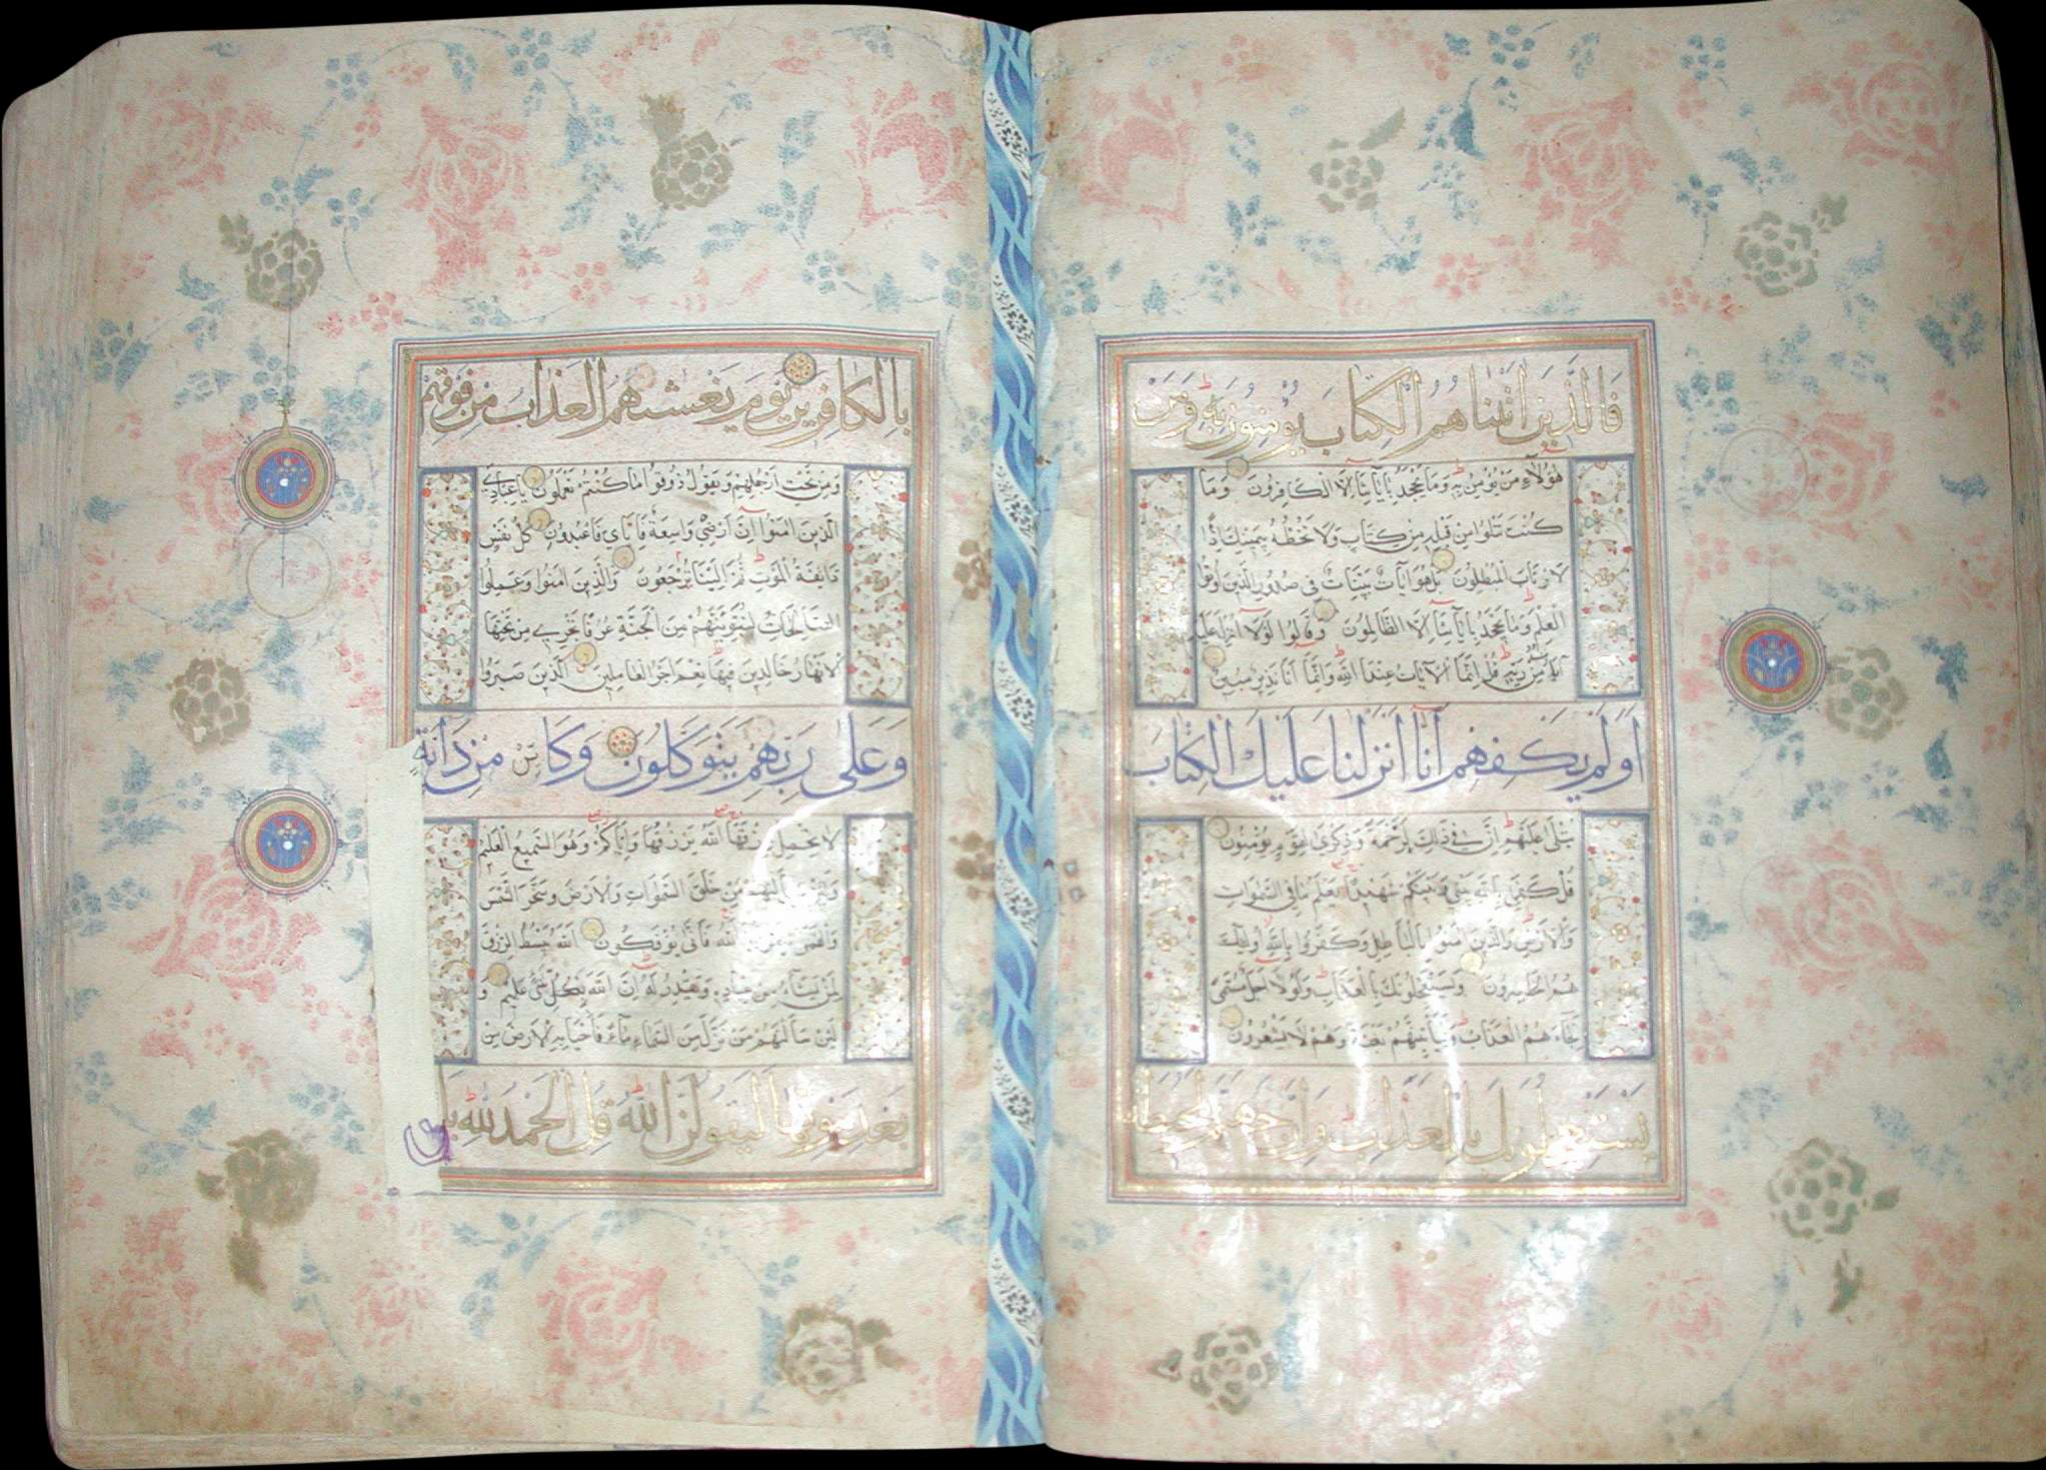 فَالَّذِينَ اٰتَيْنَاهُمُ الْكِتَابَ يُؤْمِنُونَ بِهِ وَمِنْ
هٰؤُلَاءِ مَنْ يُؤْمِنُ بِهِ وَمَا يَجْحَدُ بِاٰيَاتِنَا اِلَّا الْكَافِرُونَ وَمَا
كُنْتَ تَتْلُوا مِنْ قَبْلِهِ مِنْ كِتَابٍ وَلَا تَخُطُّهُ بِيَمِينِكَ اِذًا
لَارْتَابَ الْمُبْطِلُونَ بَلْ هُوَ اٰيَاتٌ بَيِّنَاتٌ فِي صُدُورِ الَّذِينَ اُوتُوا
الْعِلْمَ وَمَا يَجْحَدُ بِاٰيَاتِنَا اِلَّا الظَّالِمُونَ وَقَالُوا لَوْلَا اُنْزِلَ عَلَيْهِ
اٰيَاتٌ مِنْ رَبِّهِ قُلْ اِنَّمَا الْاٰيَاتُ عِنْدَ اللّٰهِ وَاِنَّمَا اَنَا نَذِيرٌ مُبِينٌ
اَوَلَمْ يَكْفِهِمْ اَنَّا اَنْزَلْنَا عَلَيْكَ الْكِتَابَ
يُتْلٰى عَلَيْهِمْ اِنَّ فِي ذٰلِكَ لَرَحْمَةً وَذِكْرٰى لِقَوْمٍ يُؤْمِنُونَ
قُلْ كَفٰى بِاللّٰهِ بَيْنِي وَبَيْنَكُمْ شَهِيدًا يَعْلَمُ مَا فِي السَّمٰوَاتِ
وَالْاَرْضِ وَالَّذِينَ اٰمَنُوا بِالْبَاطِلِ وَكَفَرُوا بِاللّٰهِ اُولٰئِكَ
هُمُ الْخَاسِرُونَ وَيَسْتَعْجِلُونَكَ بِالْعَذَابِ وَلَوْلَا اَجَلٌ مُسَمًّى
لَجَاءَهُمُ الْعَذَابُ وَلَيَأْتِيَنَّهُمْ بَغْتَةً وَهُمْ لَا يَشْعُرُونَ
يَسْتَعْجِلُونَكَ بِالْعَذَابِ وَاِنَّ جَهَنَّمَ لَمُحِيطَةٌ
بِالْكَافِرِينَ يَوْمَ يَغْشٰيهُمُ الْعَذَابُ مِنْ فَوْقِهِمْ
وَمِنْ تَحْتِ اَرْجُلِهِمْ وَيَقُولُ ذُوقُوا مَا كُنْتُمْ تَعْمَلُونَ يَا عِبَادِيَ
الَّذِينَ اٰمَنُوا اِنَّ اَرْضِي وَاسِعَةٌ فَاِيَّايَ فَاعْبُدُونِ كُلُّ نَفْسٍ
ذَائِقَةُ الْمَوْتِ ثُمَّ اِلَيْنَا تُرْجَعُونَ وَالَّذِينَ اٰمَنُوا وَعَمِلُوا
الصَّالِحَاتِ لَنُبَوِّئَنَّهُمْ مِنَ الْجَنَّةِ غُرَفًا تَجْرِي مِنْ تَحْتِهَا
الْاَنْهَارُ خَالِدِينَ فِيهَا نِعْمَ اَجْرُ الْعَامِلِينَ الَّذِينَ صَبَرُوا
وَعَلٰى رَبِّهِمْ يَتَوَكَّلُونَ وَكَاَيِّنْ مِنْ دَابَّةٍ
لَا تَحْمِلُ رِزْقَهَا اللّٰهُ يَرْزُقُهَا وَاِيَّاكُمْ وَهُوَ السَّمِيعُ الْعَلِيمُ
وَلَئِنْ سَاَلْتَهُمْ مَنْ خَلَقَ السَّمٰوَاتِ وَالْاَرْضَ وَسَخَّرَ الشَّمْسَ
وَالْقَمَرَ لَيَقُولُنَّ اللّٰهُ فَاَنّٰى يُؤْفَكُونَ اَللّٰهُ يَبْسُطُ الرِّزْقَ
لِمَنْ يَشَاءُ مِنْ عِبَادِهِ وَيَقْدِرُ لَهُ اِنَّ اللّٰهَ بِكُلِّ شَيْءٍ عَلِيمٌ وَ
لَئِنْ سَاَلْتَهُمْ مَنْ نَزَّلَ مِنَ السَّمَاءِ مَاءً فَاَحْيَا بِهِ الْاَرْضَ مِنْ
بَعْدِ مَوْتِهَا لَيَقُولُنَّ اللّٰهُ قُلِ الْحَمْدُ لِلّٰهِ بَلْ